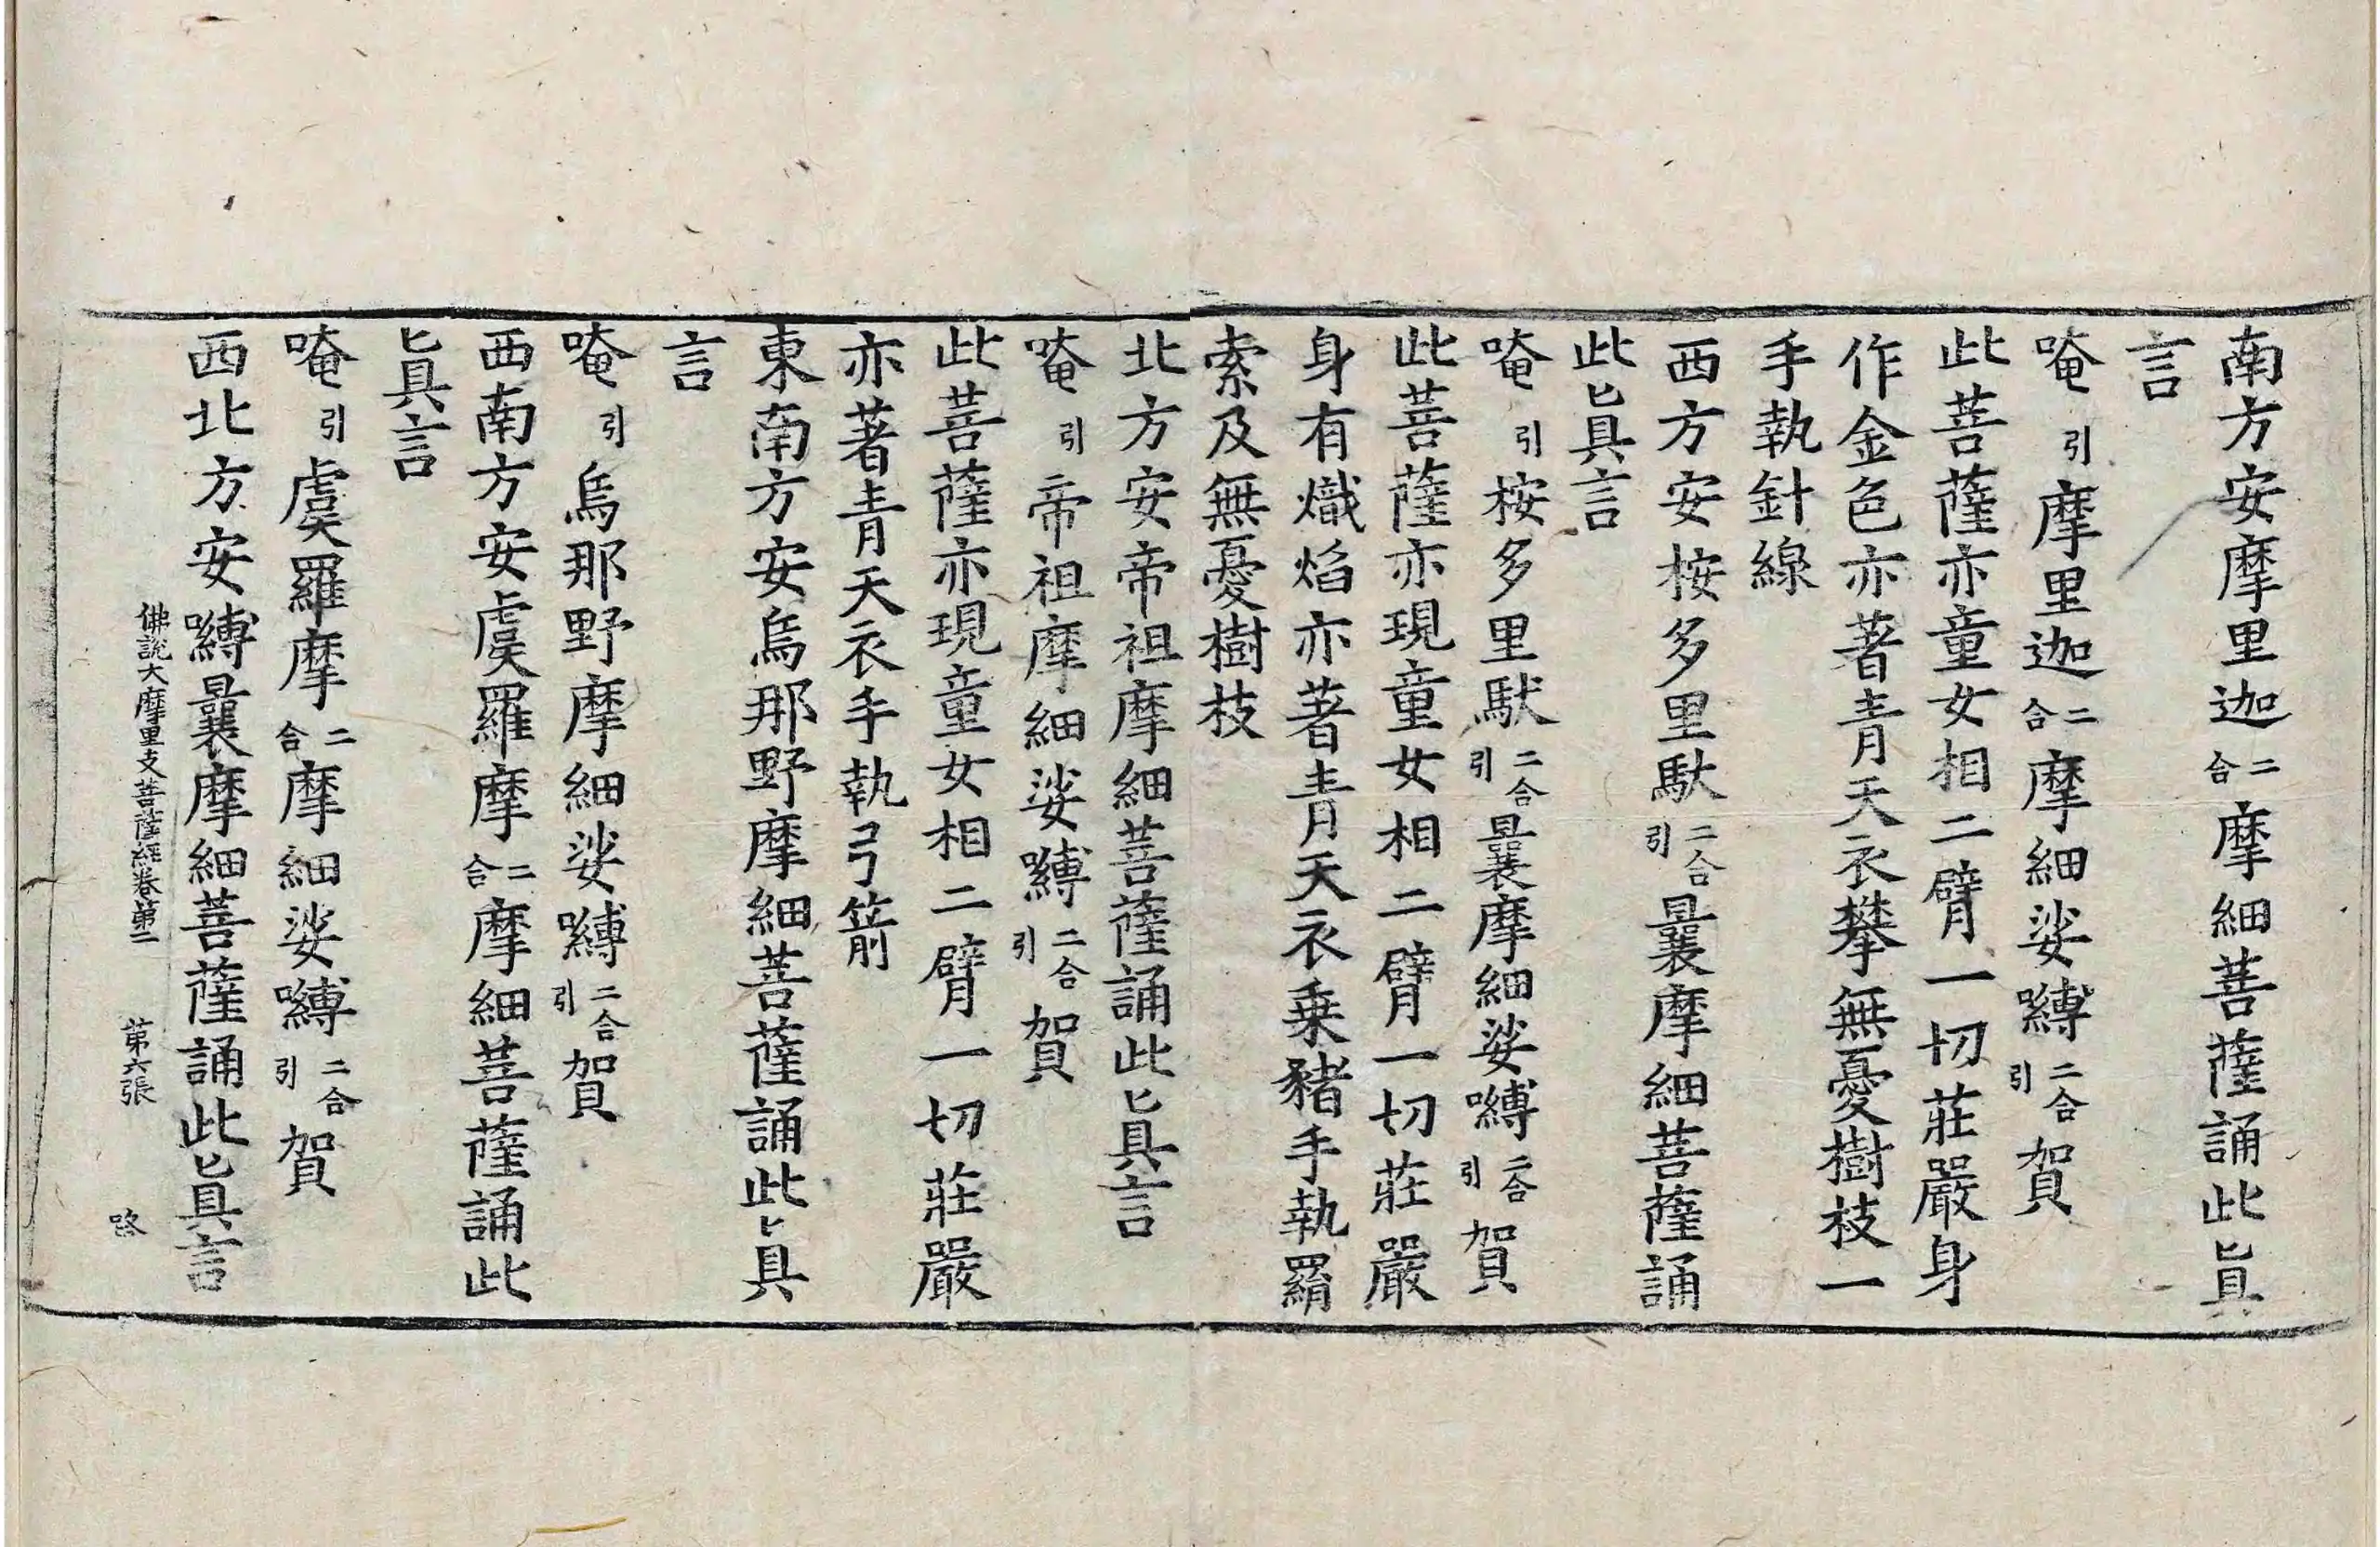 南方安摩里迦二合摩細菩薩誦此眞
言
唵引摩里迦二合摩細娑嚩二合引賀
此菩薩亦童女相二臂一切莊嚴身
作金色亦著青天衣攀無憂樹枝一
手執針線
西方安按多里馱二合引曩摩細菩薩誦
此眞言
唵引按多里馱二合引曩摩細娑嚩二合引賀
此菩薩亦現童女相二臂一切莊嚴
身有熾焰亦著青天衣乗豬手執羂
索及無憂樹枝
北方安帝祖摩細菩薩誦此眞言
唵引帝祖摩細娑嚩二合引賀
此菩薩亦現童女相二臂一切莊嚴
亦著青天衣手執弓箭
東南方安烏那野摩細菩薩誦此眞
言
唵引烏那野摩細娑嚩二合引賀
西南方安虞羅摩二合摩細菩薩誦此
眞言
唵引虞羅摩二合摩細娑嚩二合引賀
西北方安嚩曩摩細菩薩誦此眞言
佛說大摩里支菩薩經卷第二 第六張 路